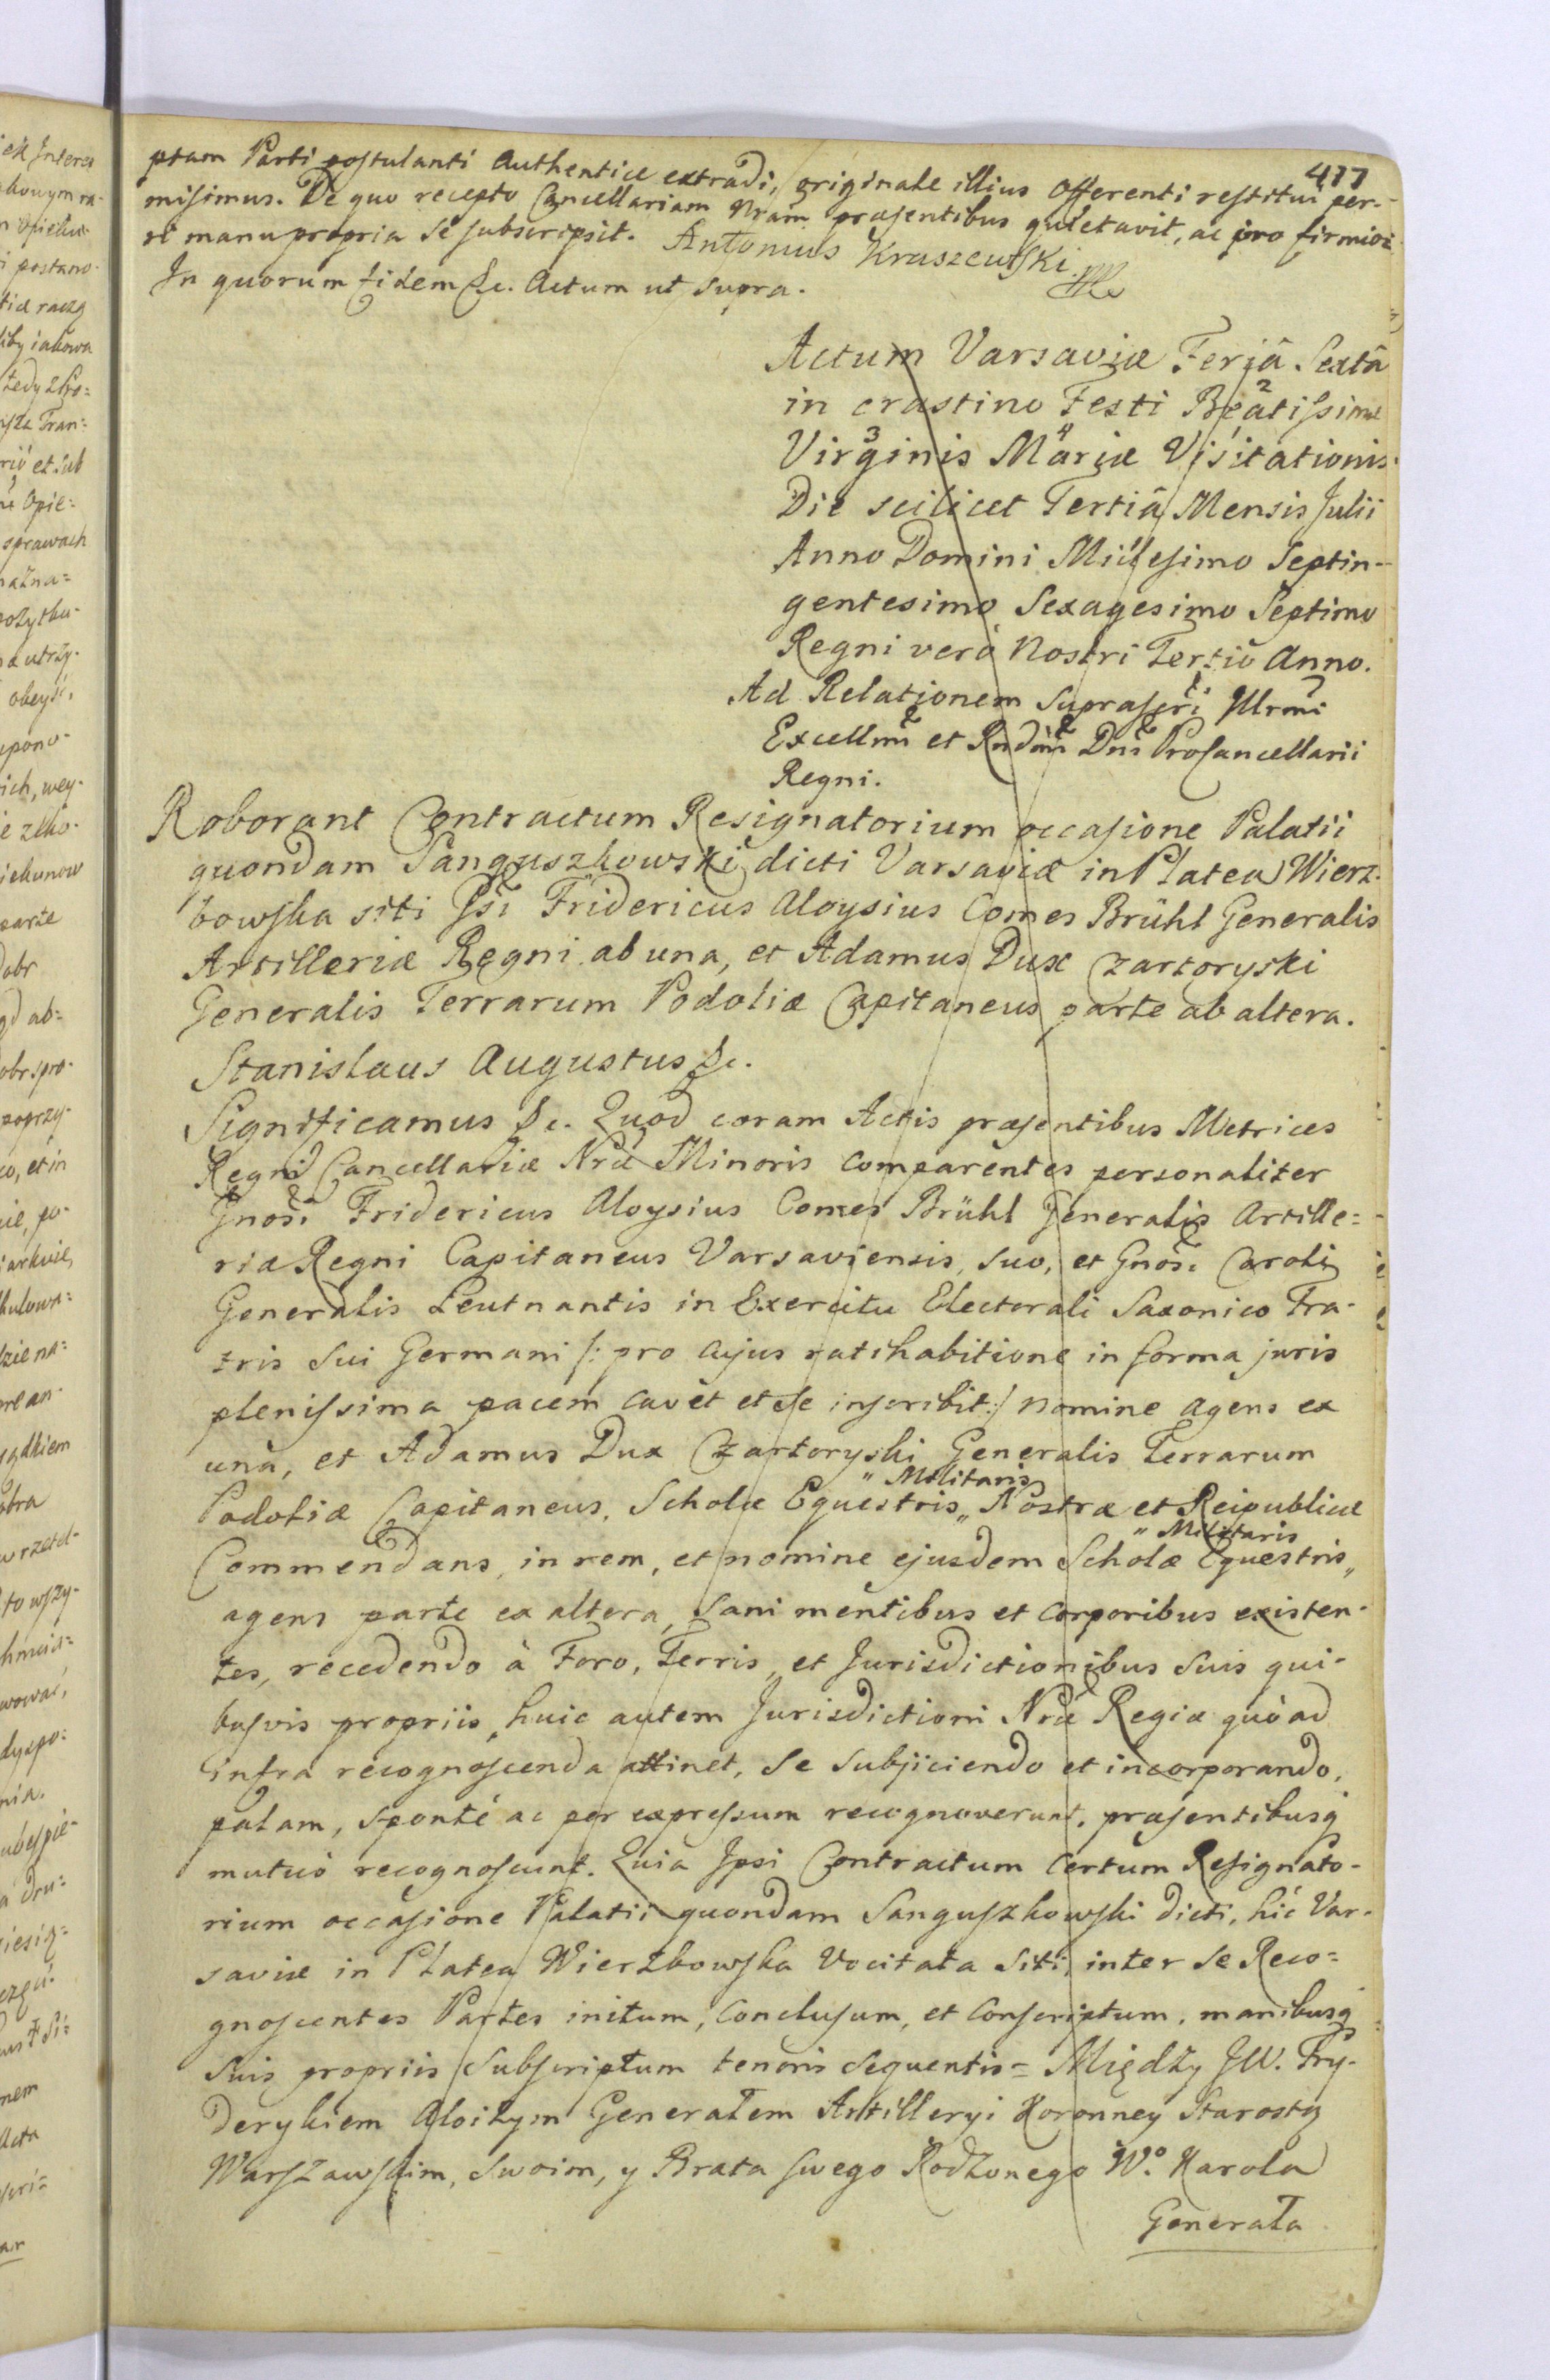 477
ptam Parti postulanti authentice extradi, originale illius Offerenti restitui per-
misimus. De quo recepto Cancellariam Nram præsentibus quietavit, ac pro firmiori
ri manu propria se subscripsit. Antonius Kraszewski mp
In quorum fidem &c. Actum ut supra.
Actum Varsaviæ Feriâ Sextâ
in crastino Festi Beatissimæ
Virginis Mariæ Visitationis
Die scilicet Tertiâ Mensis Julii
Anno Domini Millesimo Septin-
gentesimo Sexagesimo Septimo
Regni verò Nostri Tertiô Anno.
Ad Relationem suprascrti Illrmi
Excellmi et Rndmi Dni ProCancellarii
Regni.
Roborant Contractum Resignatorium occasione Palatii
quondam Sanguszkowski dicti Varsaviæ in Platea Wierz-
bowska siti Gsi Fridericus Aloysius Comes Brühl Generalis
Artilleriæ Regni ab una, et Adamus Dux Czartoryski
Generalis Terrarum Podoliæ Capitaneus parte ab altera.
Stanislaus Augustus &c.
Significamus &c. Quod coram Actis præsentibus Metrices
Regni Cancellariæ Nræ Minoris comparentes personaliter
Gnosi Fridericus Aloysius Comes Brühl Generalis Artille=
riæ Regni Capitaneus Varsaviensis, suo, et Gnosi Caroli
Generalis Leutnantis in Exercitu Electorali Saxonico Fra-
tris Sui Germani /: pro cujus ratihabitione in forma juris
plenissima pacem cavet et se inscribit :/ nomine agens ex
unâ, et Adamus Dux Czartoryski Generalis Terrarum
" Militaris
Podoliæ Capitaneus, Scholæ Equestris " Nostræ et Reipublicæ
" Militaris
Commendans, in rem, et nomine ejusdem Scholæ Equestris "
agens parte ex altera, sani mentibus et corporibus existen-
tes, recedendo à Foro, Terris, et Jurisdictionibus suis qui-
busvis propriis, huic autem Jurisdictioni Nræ Regiæ quò ad
infra recognoscenda attinet, se subjiciendo et incorporando,
palam, sponté ac per expressum recognoverunt, præsentibusq
mutuò recognoscunt. Quia Ipsi Contractum certum Resignato-
rium occasione Palatii quondam Sanguszkowski dicti, hic Var-
saviæ in Platea Wierzbowska vocitata siti, inter se Reco=
gnoscentes Partes initum, conclusum, et conscriptum, manibusq
suis propriis subscriptum tenoris sequentis = Między JW. Fry-
derykiem Aloizym Generałem Artilleryi Koronney Starostą
Warszawskim, swoim, y Brata swego Rodzonego Wo. Karola
Generała